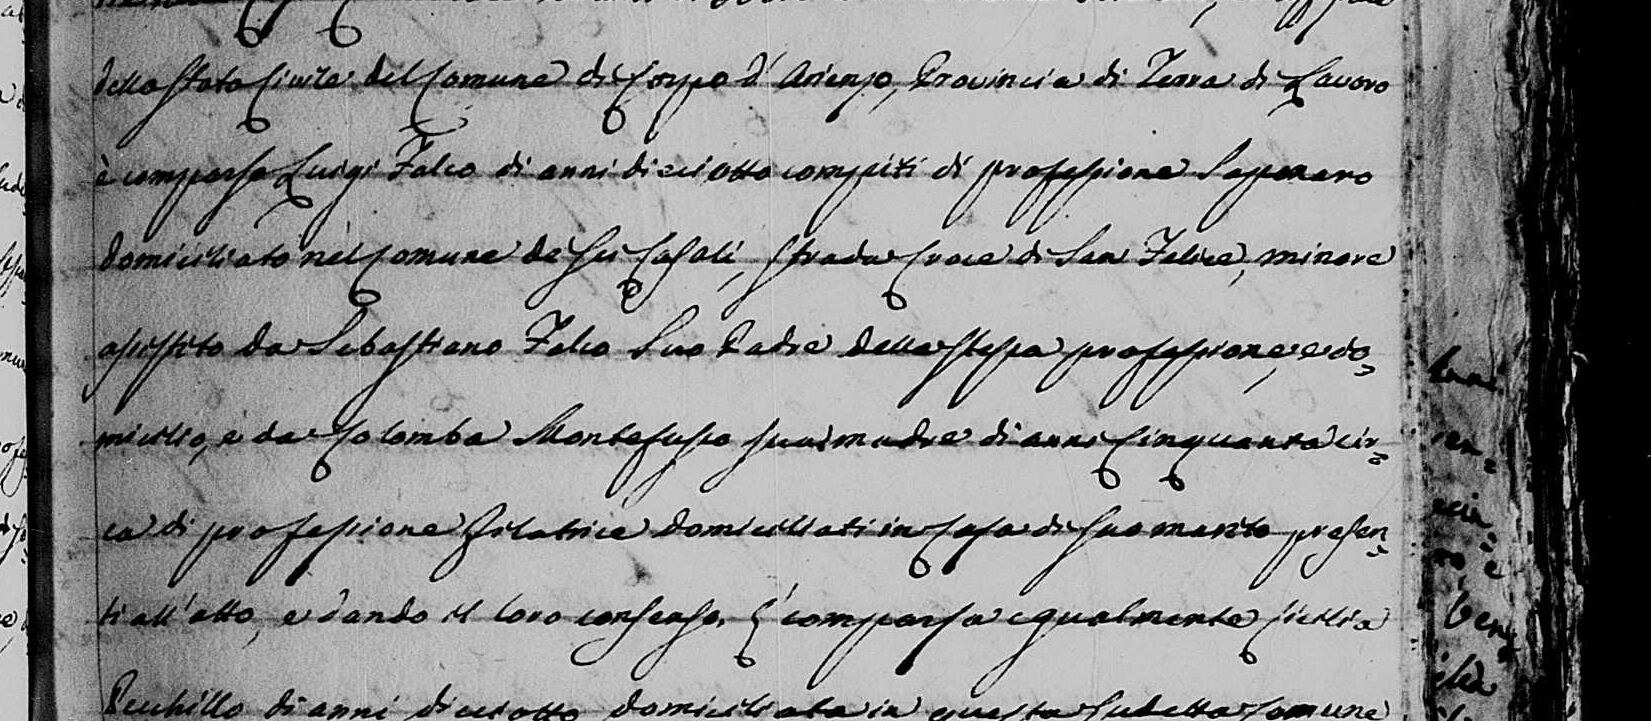 dello Stato Civile del Comune di Corpo d'Arienzo, Provincia di Terra di Lavoro
è comparso Luigi Falco di anni dieciotto compiti di professione Saponaro
domiciliato nel Comune de Sei Casali, Strada Croce di San Felice, minore
assistito da Sebastiano Falco Suo Padre della stessa professione, e do=
micilio, e da Colomba Montefusco sua madre di anni Cinquanta cir=
ca di professione filatrice domiciliati in Casa di suo marito presen=
ti all'atto, e dando il loro consenso. È comparsa egualmente Cicilia
Pecchillo di anni dieciotto domiciliata in questa sudetta Comune